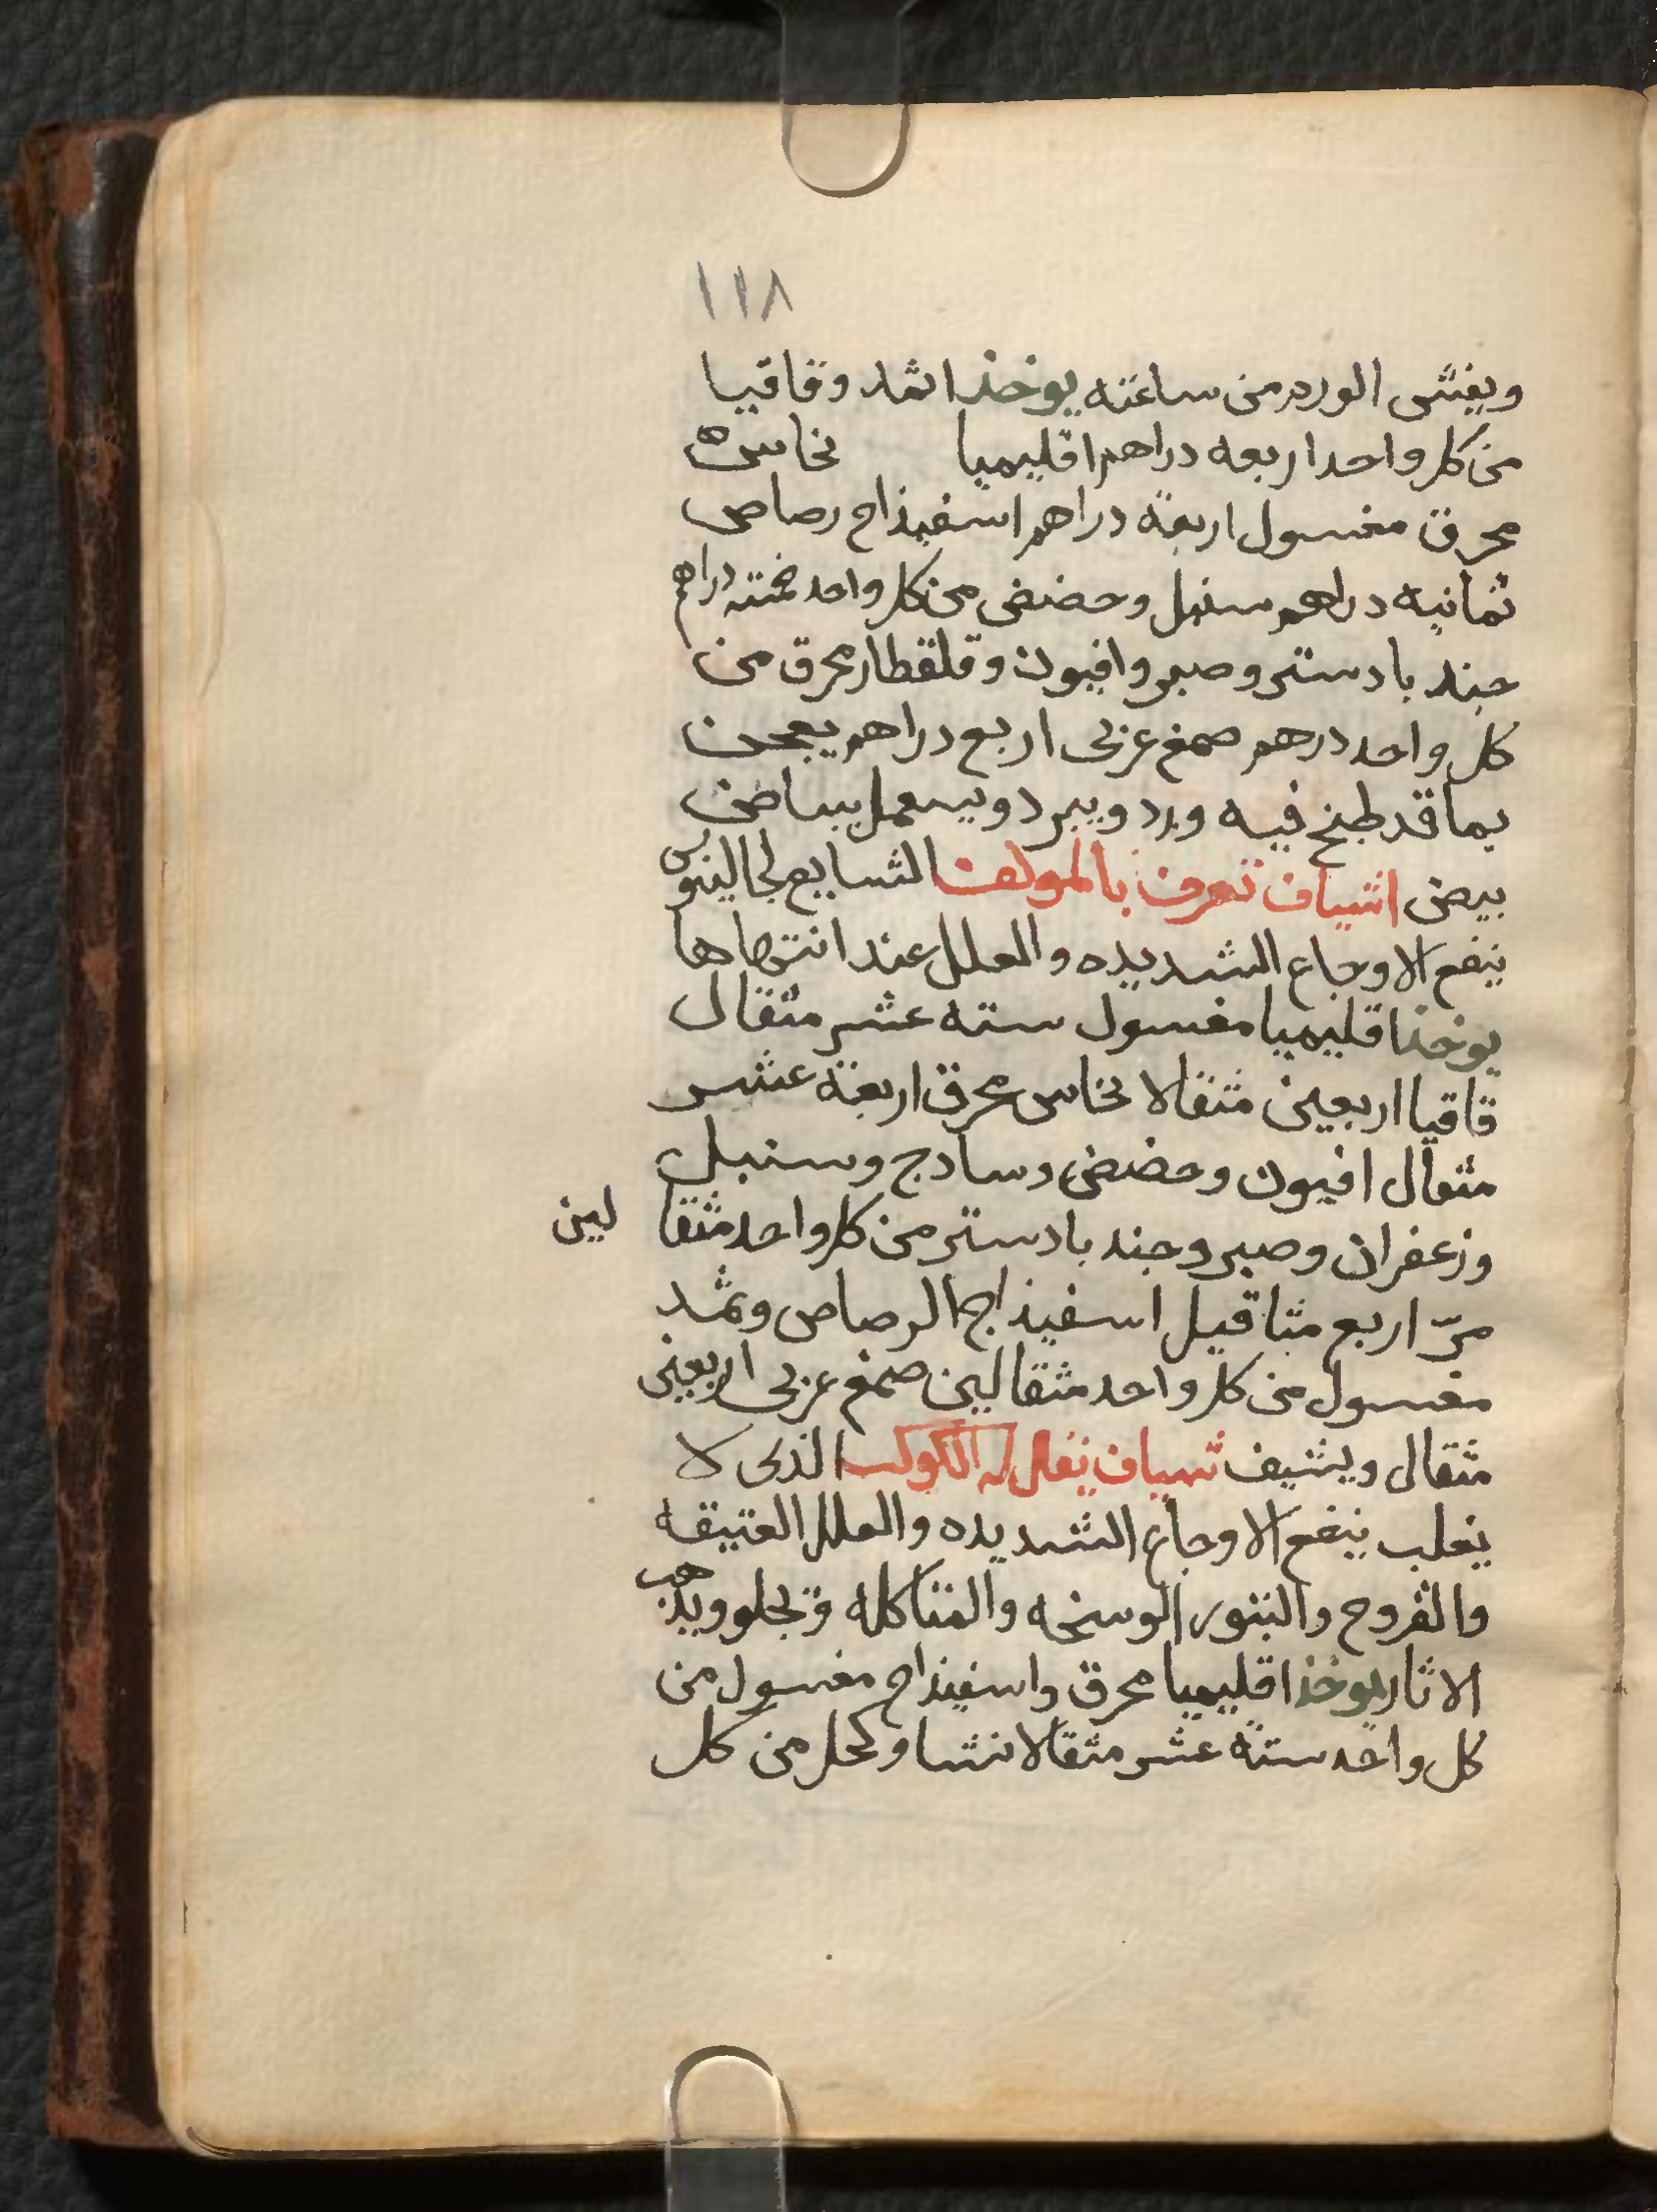 ١١٨
ويفشى الورم من ساعته يوخذ اثمد وقاقيا
من كل واحد اربعه دراهم اقليميا نحاس
محرق مغسول اربعة دراهم اسفيذاج رصاص
ثمانيه دراهم سنبل وحضض من كل واحد خمسة دراهم
جند بادستر وصبر وافيون وقلقطار محرق من
كل واحد درهم صمغ عربى اربع دراهم يعجن
بما قد طبخ فيه ورد ويبرد ويستعمل ببياض
بيض اشياف تعرف بالمولف الشايع لجالينوس
ينفع الاوجاع الشديده والعلل عند انتهاها
يوخذ اقليميا مغسول سته عشر مثقال
قاقيا اربعين مثقالا نحاس محرق اربعة عشر
مثقال افيون وحضض وسادج وسنبل
وزعفران وصبر وجند بادستر من كل واحد مثقا لين
مرّ اربع مثاقيل اسفيذاج الرصاص وثمد
مغسول من كل واحد مثقالين صمغ عربى اربعين
مثقال ويشيف شياف يقال له الكوكب الذى لا
يغلب ينفع الاوجاع الشديده والعلل العتيقه
والقروح والبثور الوسخه والمتاكله وتجلو ويذهب
الاثار يوخذ اقليميا محرق واسفيذاج مغسول من
كل واحد ستة عشر مثقالا نشا وكحل من كل